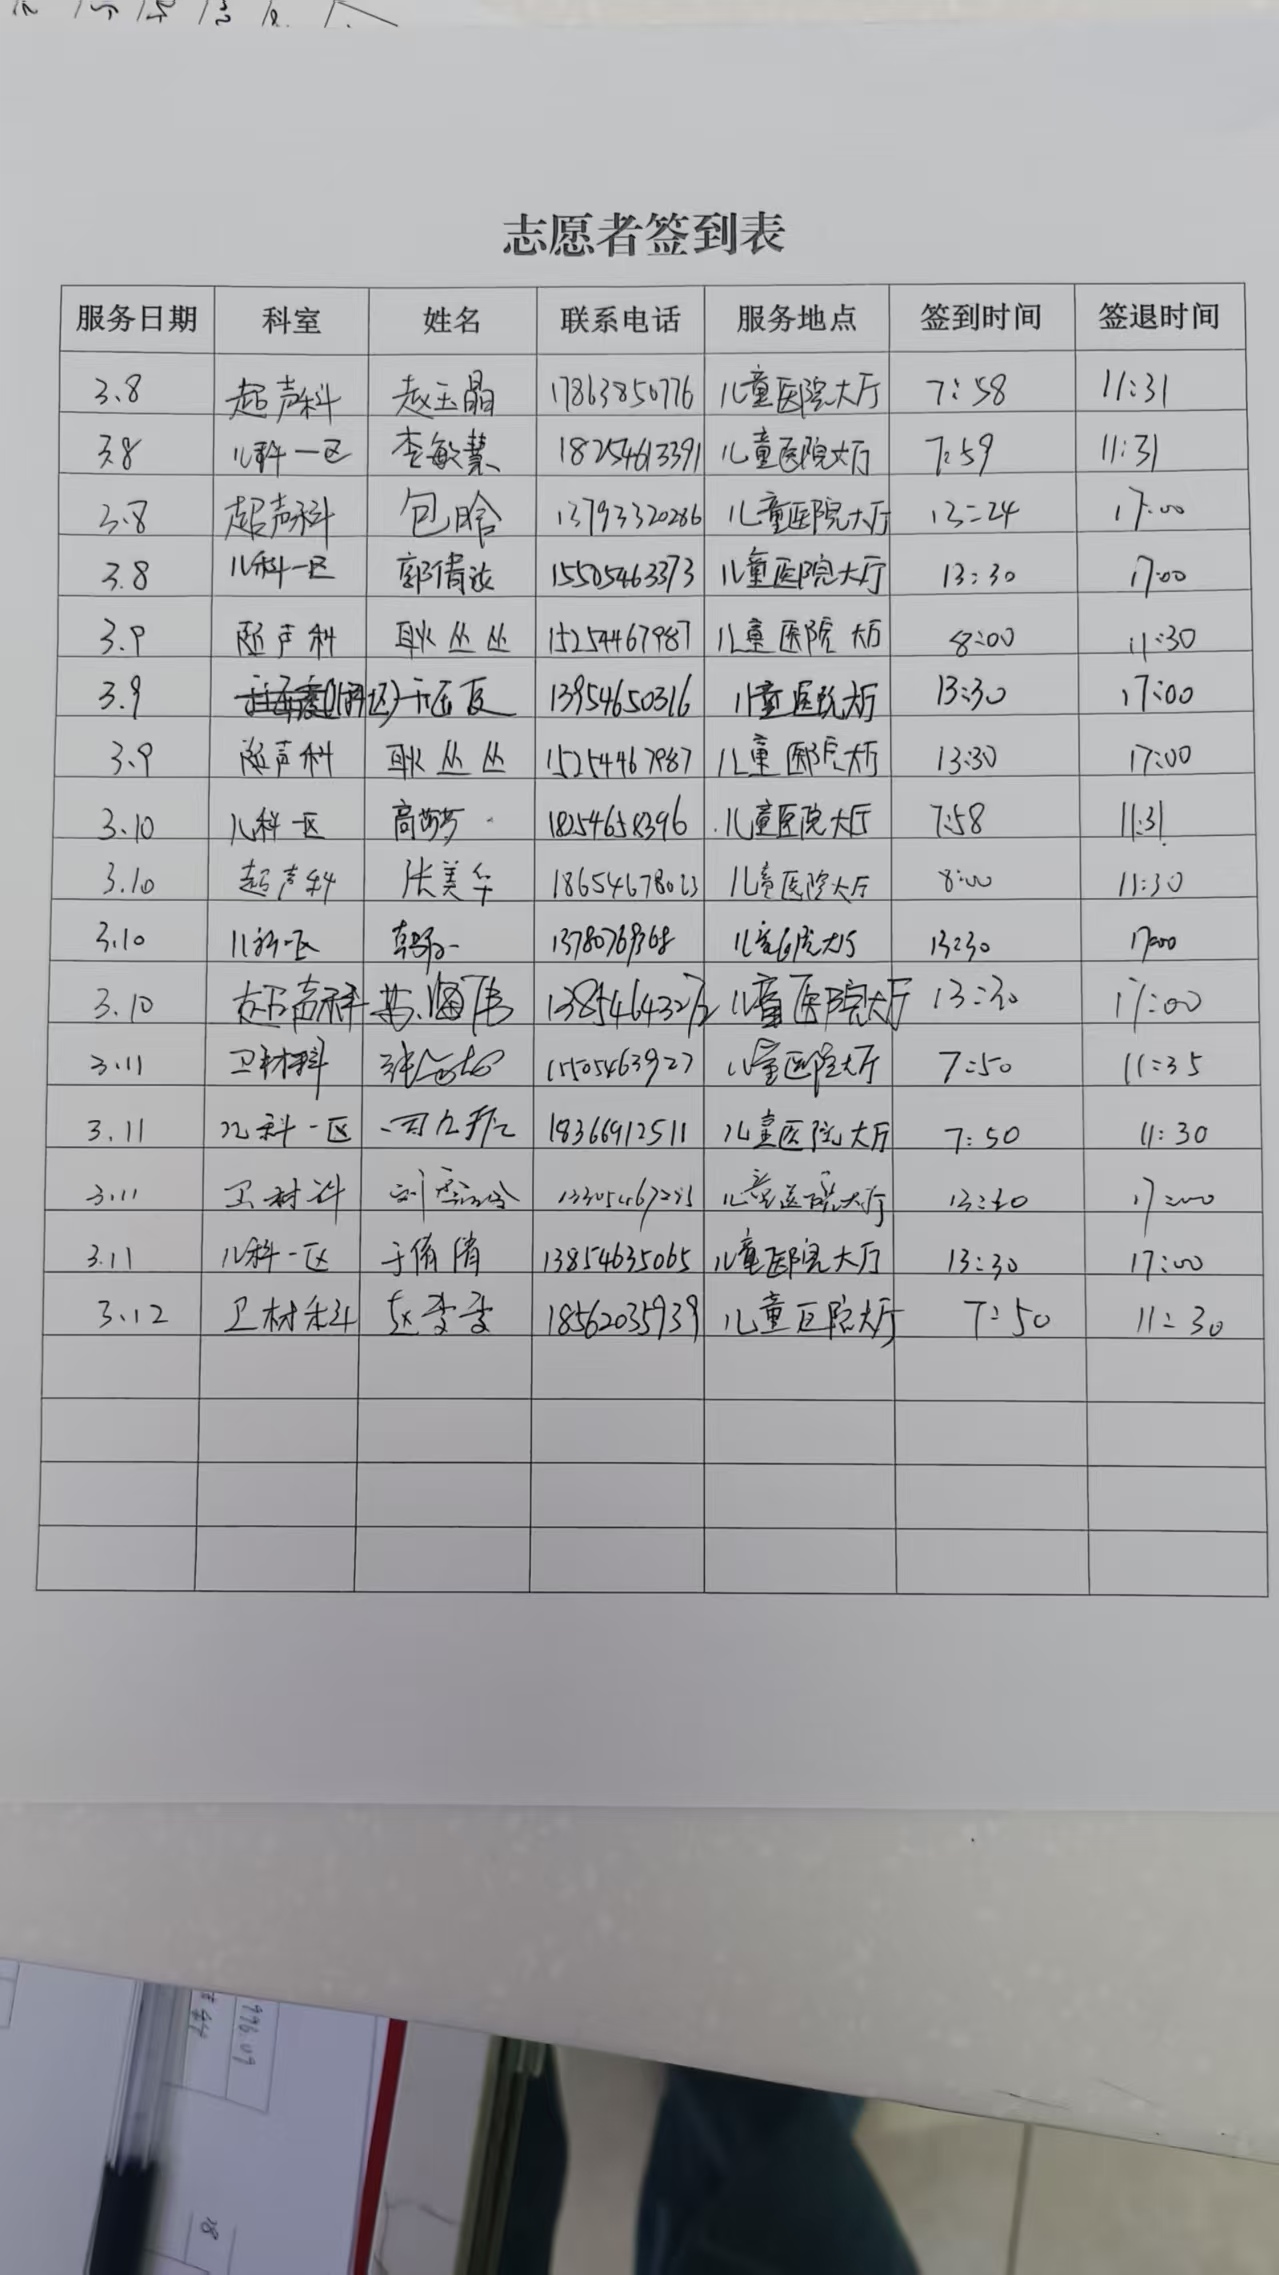 志愿者签到表
服务日期 科室 姓名 联系电话 服务地点 签到时间 签退时间
3.8 超声科 赵玉晶 17863850776 儿童医院大厅 7:58 11:31
3.8 儿科一区 李敏慧 18254613391 儿童医院大厅 7:59 11:31
3.8 超声科 包晗 13793320286 儿童医院大厅 13:24 17:00
3.8 儿科一区 郭倩 15505463373 儿童医院大厅 13:30 17:00
3.9 超声科 耿丛丛 15254467987 儿童医院大厅 8:00 11:30
3.9 13954650316 儿童医院大厅 13:30 17:00
3.9 超声科 耿丛丛 15254467987 儿童医院大厅 13:30 17:00
3.10 儿科一区 高 18254658396 儿童医院大厅 7:58 11:31
3.10 超声科 张美华 18654678023 儿童医院大厅 8:00 11:30
3.10 儿科一区 儿童医院大厅 13:30 17:00
3.10 超声科 海伟 儿童医院大厅 13:30 17:00
3.11 卫材科 张 15505463927 儿童医院大厅 7:50 11:35
3.11 儿科一区 18366912511 儿童医院大厅 7:50 11:30
3.11 卫材科 刘 儿童医院大厅 13:30 17:00
3.11 儿科一区 于倩倩 13854635065 儿童医院大厅 13:30 17:00
3.12 卫材科 赵 18562035939 儿童医院大厅 7:50 11:30